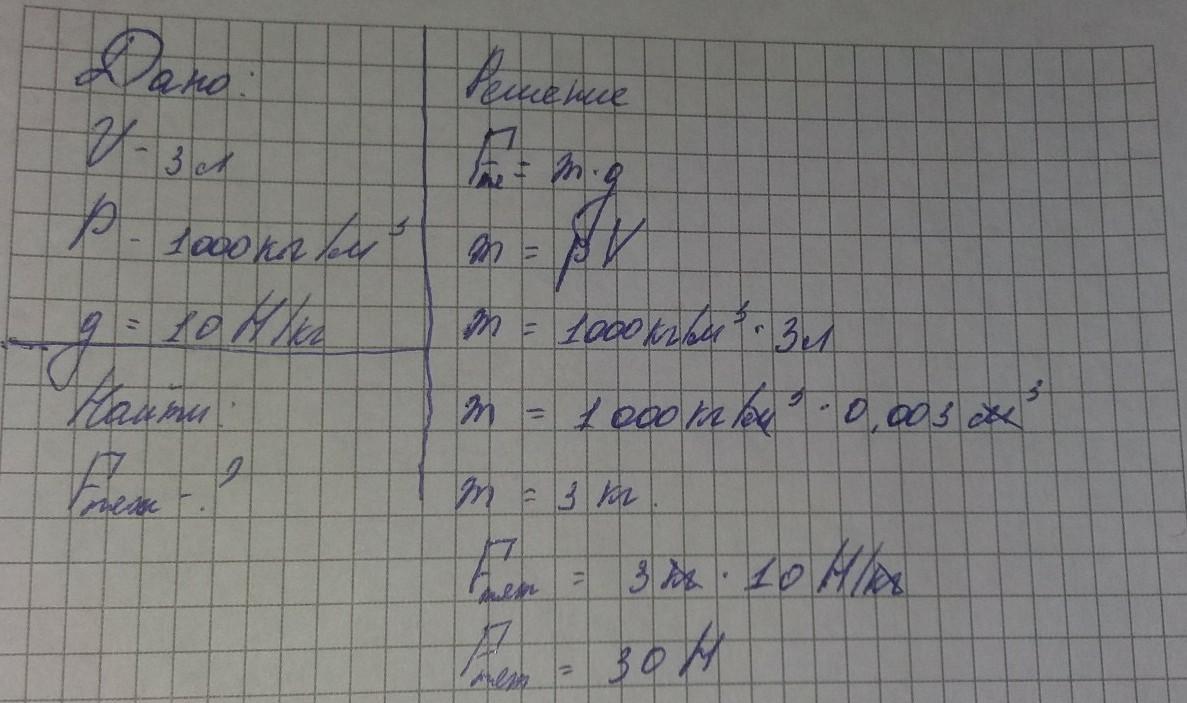 Дано:
V - 3 л
ρ - 1000 кг/м³
g = 10 Н/кг
Найти:
Fтяж - ?
Решение
Fтяж = m · g
m = ρV
m = 1000 кг/м³ · 3 л
m = 1000 кг/м³ · 0,003 м³
m = 3 кг.
Fтяж = 3 кг · 10 Н/кг
Fтяж = 30 Н